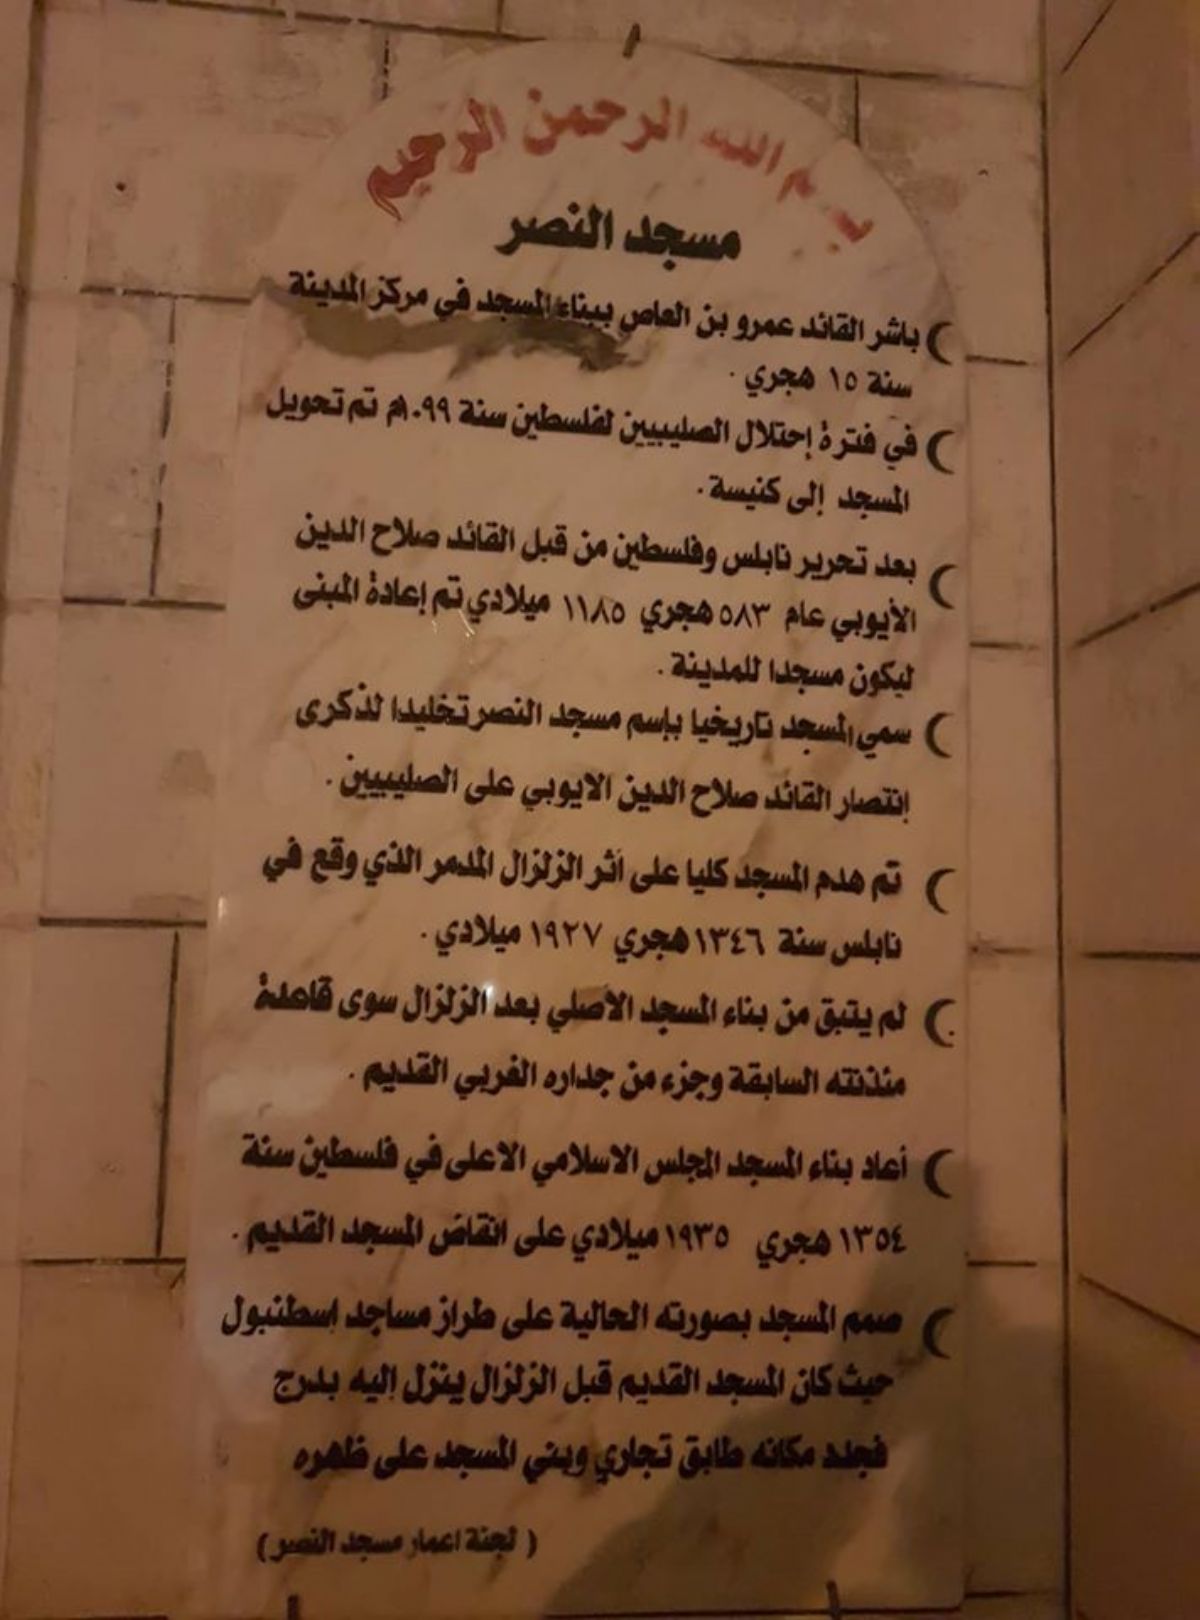 بسم الله الرحمن الرحيم
مسجد النصر
باشر القائد عمرو بن العاص ببناء المسجد في مركز المدينة
سنة ١٥ هجري .
في فترة إحتلال الصليبيين لفلسطين سنة ١٠٩٩م تم تحويل
المسجد إلى كنيسة .
بعد تحرير نابلس وفلسطين من قبل القائد صلاح الدين
الأيوبي عام ٥٨٣ هجري ١١٨٥ ميلادي تم إعادة المبنى
ليكون مسجدا للمدينة .
سمي المسجد تاريخيا بإسم مسجد النصر تخليدا لذكرى
إنتصار القائد صلاح الدين الايوبي على الصليبيين .
تم هدم المسجد كليا على أثر الزلزال المدمر الذي وقع في
نابلس سنة ١٣٤٦ هجري ١٩٢٧ ميلادي .
لم يتبق من بناء المسجد الأصلي بعد الزلزال سوى قاعدة
مئذنته السابقة وجزء من جداره الغربي القديم .
أعاد بناء المسجد المجلس الاسلامي الاعلى في فلسطين سنة
١٣٥٤ هجري ١٩٣٥ ميلادي على انقاض المسجد القديم .
صمم المسجد بصورته الحالية على طراز مساجد إسطنبول
حيث كان المسجد القديم قبل الزلزال ينزل اليه بدرج
فجدد مكانه طابق تجاري وبني المسجد على ظهره
( لجنة اعمار مسجد النصر )